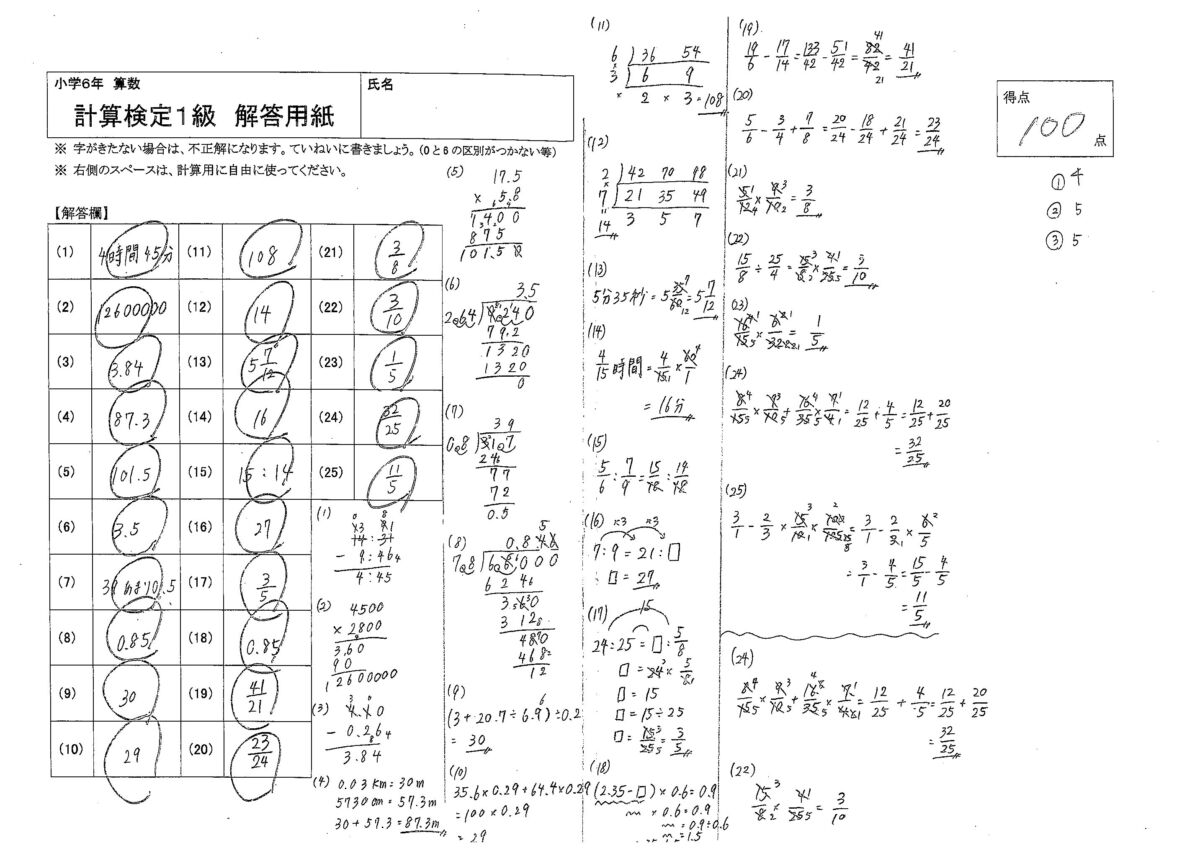 小学6年 算数
計算検定1級 解答用紙
氏名
※ 字がきたない場合は、不正解になります。ていねいに書きましょう。(0と6の区別がつかない等)
※ 右側のスペースは、計算用に自由に使ってください。
得点
100
点
① 4
② 5
③ 5
【解答欄】
(1) 4時間45分 (11) 108 (21) 3/8
(2) 12600000 (12) 14 (22) 3/10
(3) 3.84 (13) 5 7/12 (23) 1/5
(4) 87.3 (14) 16 (24) 32/25
(5) 101.5 (15) 15:14 (25) 11/5
(6) 3.5 (16) 27
(7) 39あまり0.5 (17) 3/5
(8) 0.85 (18) 0.85
(9) 30 (19) 41/21
(10) 29 (20) 23/24
(1)
14:31
- 9:46
4:45
(2)
4500
×2800
360
90
12600000
(3)
- 0.26
3.84
(4) 0.03km=30m
5730cm=57.3m
30+57.3=87.3m
(5)
17.5
× 5.8
1400
875
101.5
(6)
3.5
2.64
79.2
1320
1320
0
(7)
39
0.8
24
77
72
0.5
(8)
7.8
624
312
468
12
(9)
(3+20.7÷6.9)÷0.2
=30
(10)
35.6×0.29+64.4×0.29
=100×0.29
=29
(11)
6 ) 36 54
×
3 ) 6 9
× 2 × 3=108
(12)
2 ) 42 70 98
×
7 ) 21 35 49
14 3 5 7
(13)
5分35秒=5 35/60=5 7/12
(14)
4/15時間=4/15×60/1
=16分
(15)
5/6:7/9=15/18:14/18
(16) ×3 ×3
7:9=21:□
□=27
(17) 15
24:25=□:5/8
□=24×5/8
□=15
□=15÷25
□=15/25=3/5
(18)
(2.35-□)×0.6=0.9
×0.6=0.9
=0.9÷0.6
=1.5
(19)
19/6-17/14=133/42-51/42=82/42=41/21
(20)
5/6-3/4+7/8=20/24-18/24+21/24=23/24
(21)
=3/8
(22)
15/8÷25/4=15/8×4/25=3/10
(23)
=1/5
(24)
=12/25+4/5=12/25+20/25
=32/25
(25)
=3/1-4/5=15/5-4/5
=11/5
(24)
=12/25+4/5=12/25+20/25
=32/25
(22)
15/8×4/25=3/10